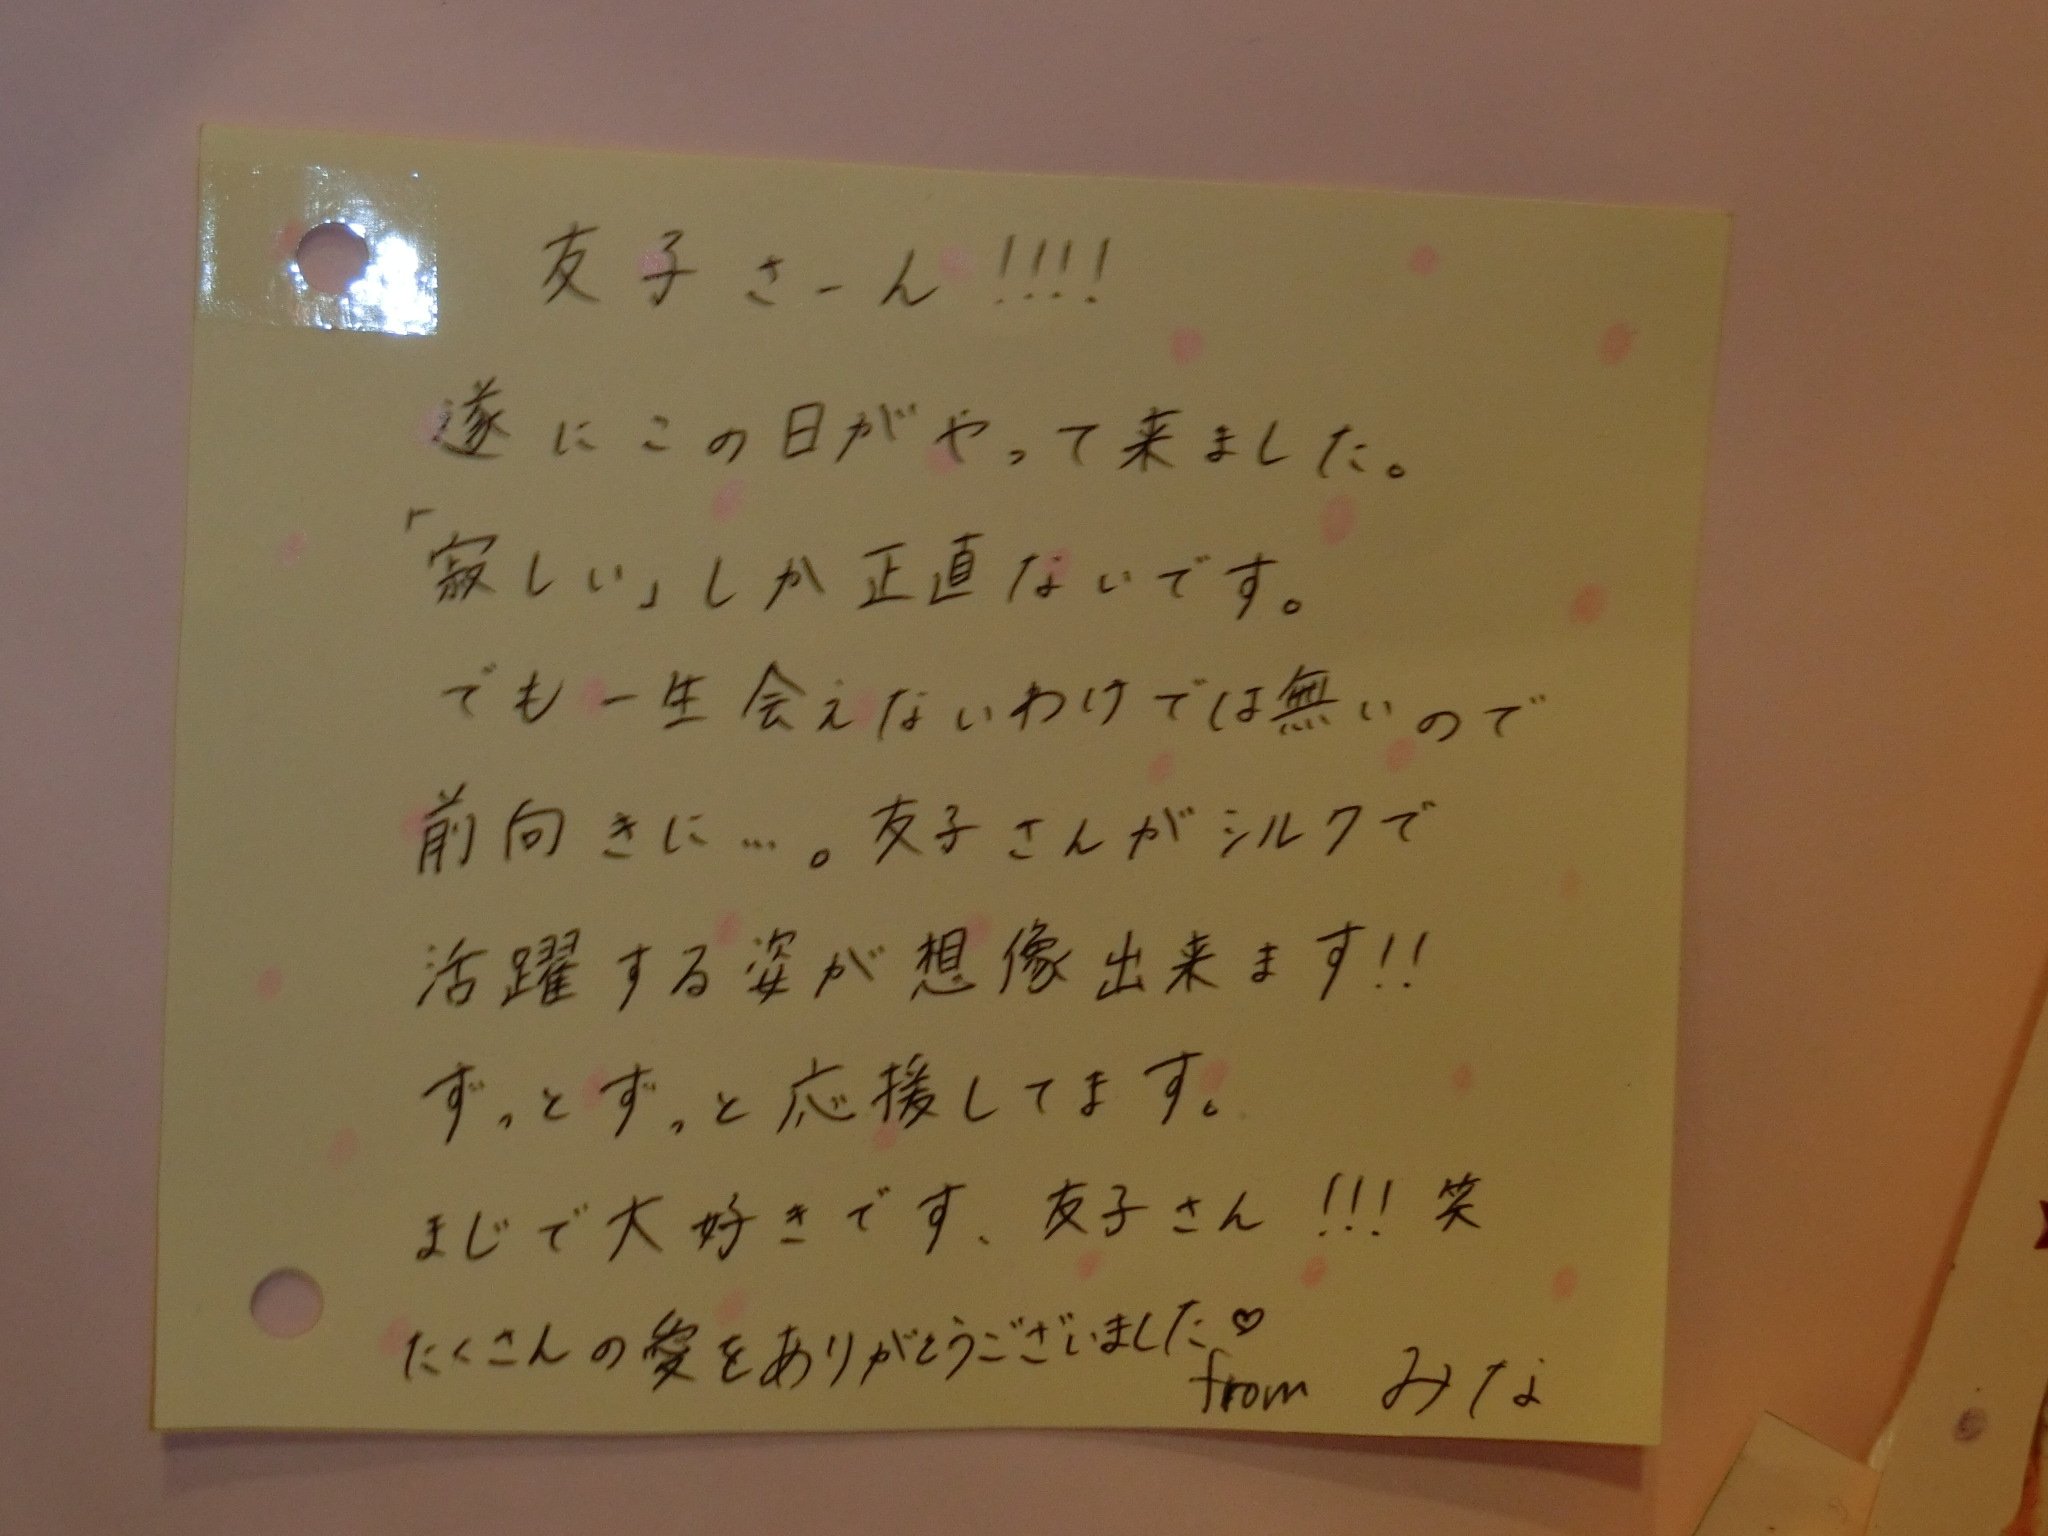 友子さーん!!!!
遂にこの日がやって来ました。
「寂しい」しか正直ないです。
でも一生会えないわけでは無いので
前向きに…。友子さんがシルクで
活躍する姿が想像出来ます!!
ずっとずっと応援してます。
まじで大好きです、友子さん!!!笑
たくさんの愛をありがとうございました♡
from みな